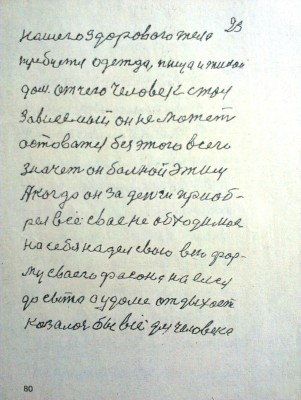 23
нашего здорового тела
требуется одежда, пища и жилой
дом. от чего Человек стал
Зависемый, он не может
остоватся без этого всего
значет он болной Этим
А когда он за деньги приоб-
рел всё своё не обходимое
на себя надел свою вно фор-
му своего фасона, наелся
до сыта а у доме отдыхает
казалос бы всё для человека
80